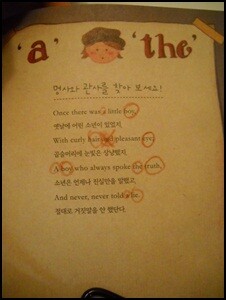 'a' 'the'
명사와 관사를 찾아 보세요!
Once there was a little boy,
옛날에 어린 소년이 있었지
With curly hair and pleasant eye;
곱슬머리에 눈빛은 상냥했지
A boy who always spoke the truth,
소년은 언제나 진실만을 말했고
And never, never told a lie.
절대로 거짓말을 안 했단다.